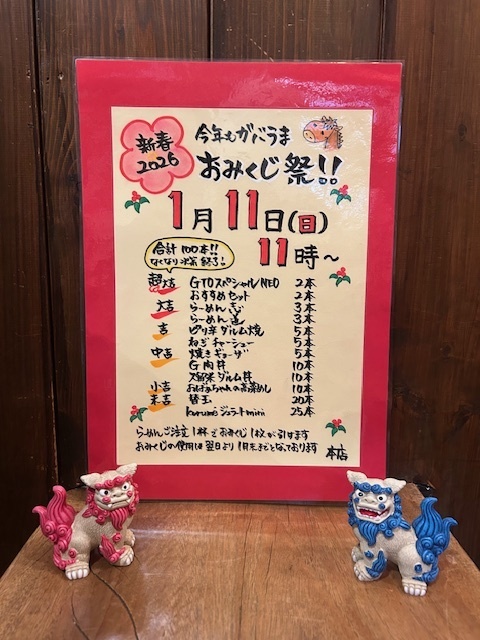 新春
2026
今年もガバうま
おみくじ祭!!
1月11日(日)
11時～
合計100本!!
なくなり次第終了!
超大吉 GTOスペシャルNEO 2本
おすすめセット 2本
大吉 らーめん 3本
らーめん 3本
吉 ピリ辛ダルム焼 5本
ねぎチャーシュー 5本
中吉 焼きギョーザ 5本
G肉丼 10本
久留米ダルム丼 10本
小吉 おばあちゃんの高菜めし 10本
末吉 替玉 20本
kurumeジェラートmini 25本
らーめんご注文1杯でおみくじ1枚が引けます
おみくじの使用は翌日より1月末までとなっております 本店